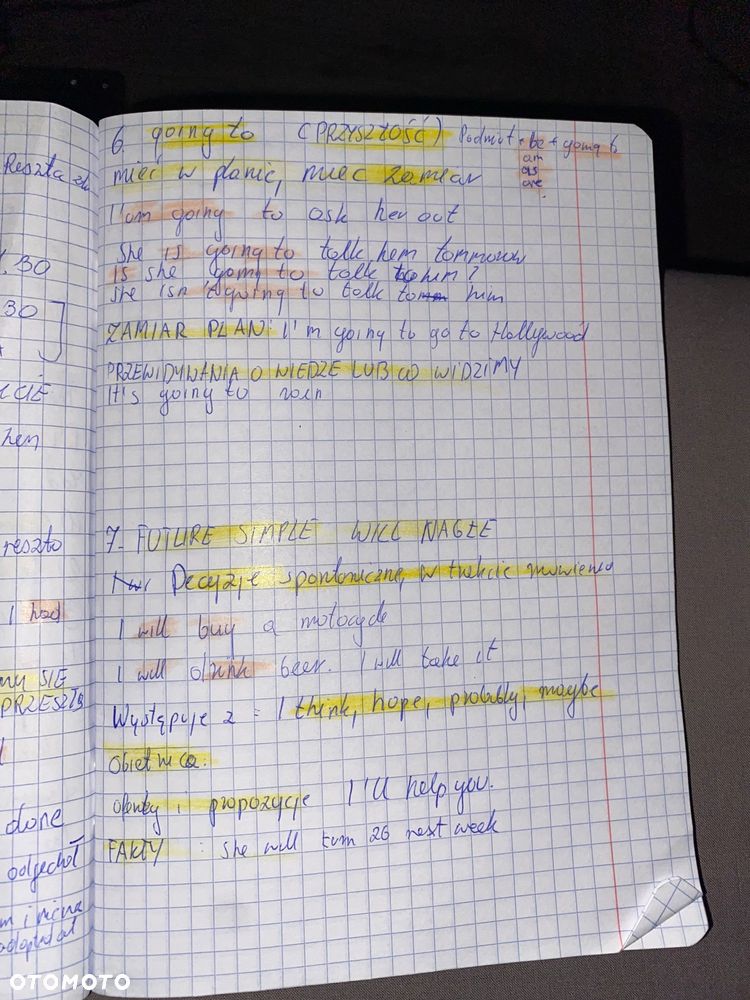 Reszta
30
30
CIE
hem
reszto
I had
my SIE
PRZESZŁ
done
odjechał
6. going to (PRZYSZŁOŚĆ) Podmiot + be + going to
am
is
are
mieć w planie, mieć zamiar
I'am going to ask her out
She is going to talk hem tommorow
is she going to talk to him?
She isn't going to talk to him
ZAMIAR PLAN: I'm going to go to Hollywood
PRZEWIDYWANIA O WIEDZE LUB CO WIDZIMY
It's going to rain
7. FUTURE SIMPLE WILL NAGŁE
Decyzje spontaniczne, w trakcie mówienia
I will buy a motocycle
I will drink beer. I will take it
Występuje z = I think, hope, probably, maybe
Obietnica:
Oferty i propozycje I'll help you.
FAKTY : She will turn 26 next week
OTOMOTO